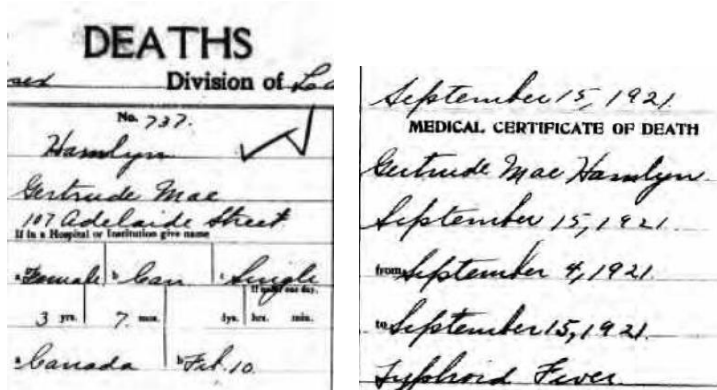 DEATHS
Division of
No. 737.
Hamlyn
Gertrude Mae
107 Adelaide Street
If in a Hospital or Institution give name
a Female b Can c Single
If under one day,
3 yrs. 7 mos. dys. hrs. min.
a Canada b Feb. 10
September 15, 1921
MEDICAL CERTIFICATE OF DEATH
Gertrude Mae Hamlyn
September 15, 1921.
from September 4, 1921.
to September 15, 1921.
Typhoid Fever